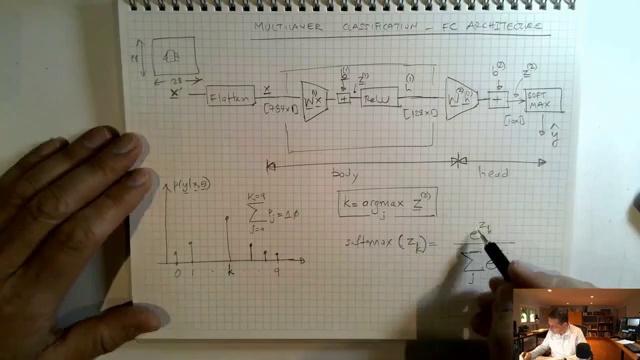 MULTILAYER CLASSIFICATION - FC ARCHITECTURE
28
28
x'
Flatten
x
[784x1]
W⁽¹⁾x
b⁽¹⁾
+
z⁽¹⁾
ReLU
h⁽¹⁾
[128x1]
W⁽²⁾h
b⁽²⁾
+
z⁽²⁾
[10x1]
SOFT
MAX
ŷ
body
head
K=9
∑ Pj = 1.0
j=0
0 1 k 9
k = argmax z⁽²⁾
j
softmax (z_k) = e^{z_k}
∑ e
j